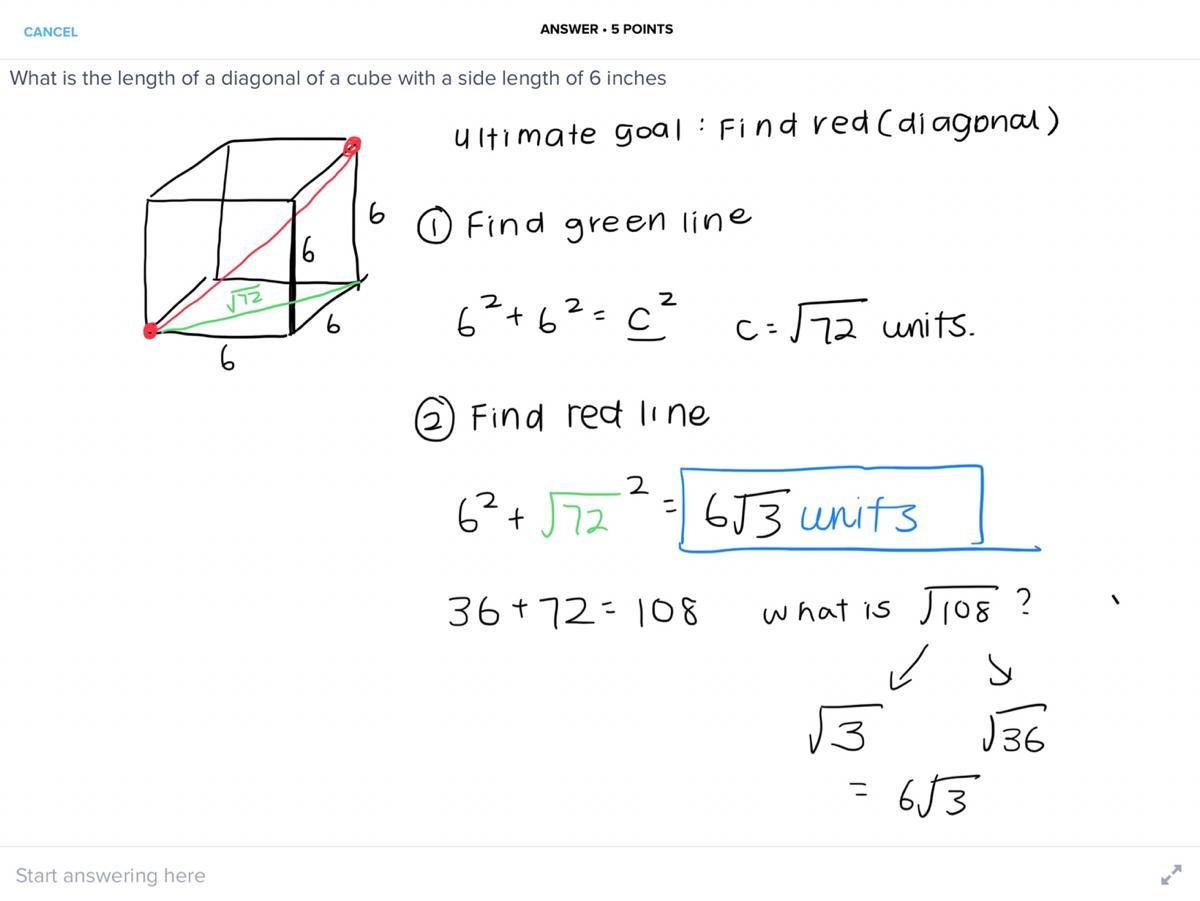 CANCEL
ANSWER • 5 POINTS
What is the length of a diagonal of a cube with a side length of 6 inches
ultimate goal : Find red (diagonal)
6
① Find green line
6
√72
6
6
6² + 6² = c² c = √72 units.
② Find red line
6² + √72² = 6√3 units
36 + 72 = 108 what is √108 ?
√3 √36
= 6√3
Start answering here